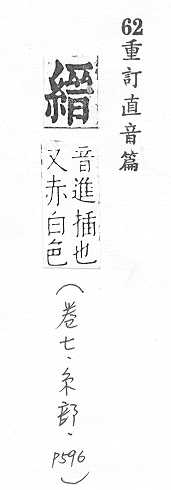 62重訂直音篇
縉
音進插也
又赤白色
(卷七·糸部·P596)